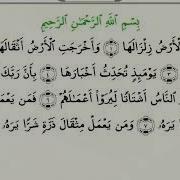 بِسْمِ ٱللَّهِ ٱلرَّحْمَـٰنِ ٱلرَّحِيمِ
ٱلْأَرْضُ زِلْزَالَهَا ١ وَأَخْرَجَتِ ٱلْأَرْضُ أَثْقَالَهَا
٣ يَوْمَئِذٍ تُحَدِّثُ أَخْبَارَهَا ٤ بِأَنَّ رَبَّكَ
ٱلنَّاسُ أَشْتَاتًا لِّيُرَوْا۟ أَعْمَـٰلَهُمْ ٦ فَمَن يَعْمَلْ
يَرَهُۥ ٧ وَمَن يَعْمَلْ مِثْقَالَ ذَرَّةٍ شَرًّا يَرَهُۥ